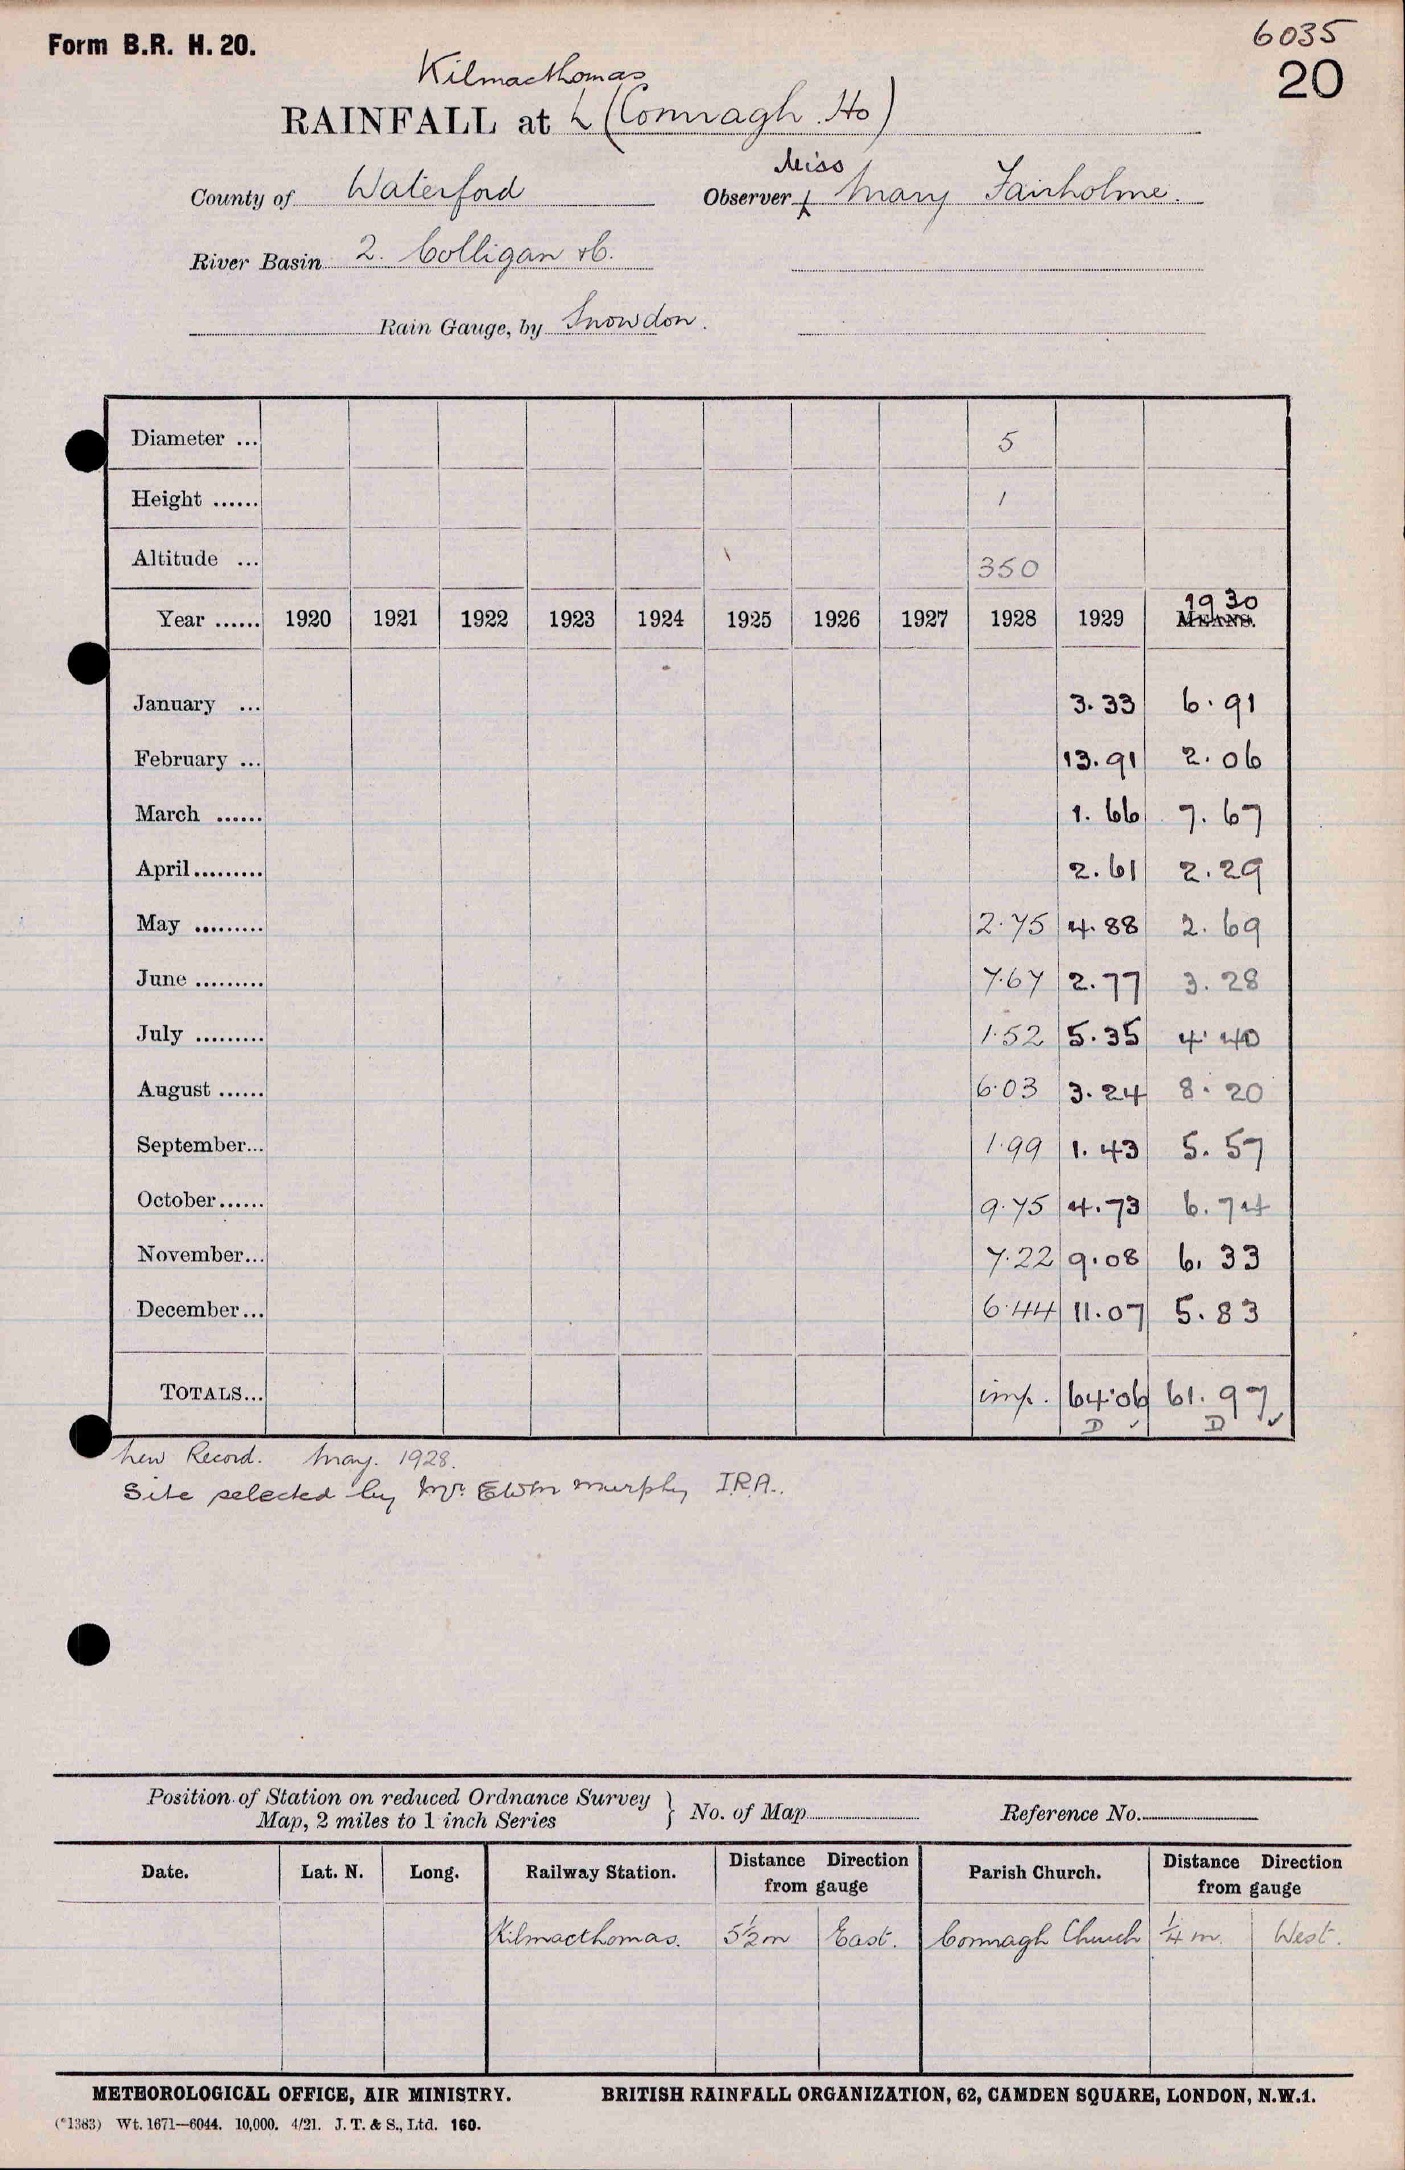 Form B.R. H. 20.
6035
20
Kilmacthomas
RAINFALL at (Comragh Ho)
Miss
County of Waterford Observer Mary Fairholme.
River Basin 2. Colligan &c.
Rain Gauge, by Snowdon.
Diameter ... 5
Height ...... 1
Altitude ... 350
1930
Year ...... 1920 1921 1922 1923 1924 1925 1926 1927 1928 1929 MEANS.
January ... 3.33 6.91
February ... 13.91 2.06
March ...... 1.66 7.67
April......... 2.61 2.29
May ......... 2.75 4.88 2.69
June ......... 7.67 2.77 3.28
July ......... 1.52 5.35 4.40
August ...... 6.03 3.24 8.20
September... 1.99 1.43 5.57
October...... 9.75 4.73 6.74
November... 7.22 9.08 6.33
December... 6.44 11.07 5.83
TOTALS... imp. 64.06 61.97
D ✓ D ✓
New Record. May. 1928.
Site selected by Mr. Murphy I.R.A..
Position of Station on reduced Ordnance Survey
Map, 2 miles to 1 inch Series } No. of Map Reference No.
Date. Lat. N. Long. Railway Station. Distance Direction from gauge Parish Church. Distance Direction from gauge
Kilmacthomas. 5½ m East. Comragh Church ¼ m. West.
METEOROLOGICAL OFFICE, AIR MINISTRY. BRITISH RAINFALL ORGANIZATION, 62, CAMDEN SQUARE, LONDON, N.W.1.
(*1383) Wt. 1671—6044. 10,000. 4/21. J. T. & S., Ltd. 160.